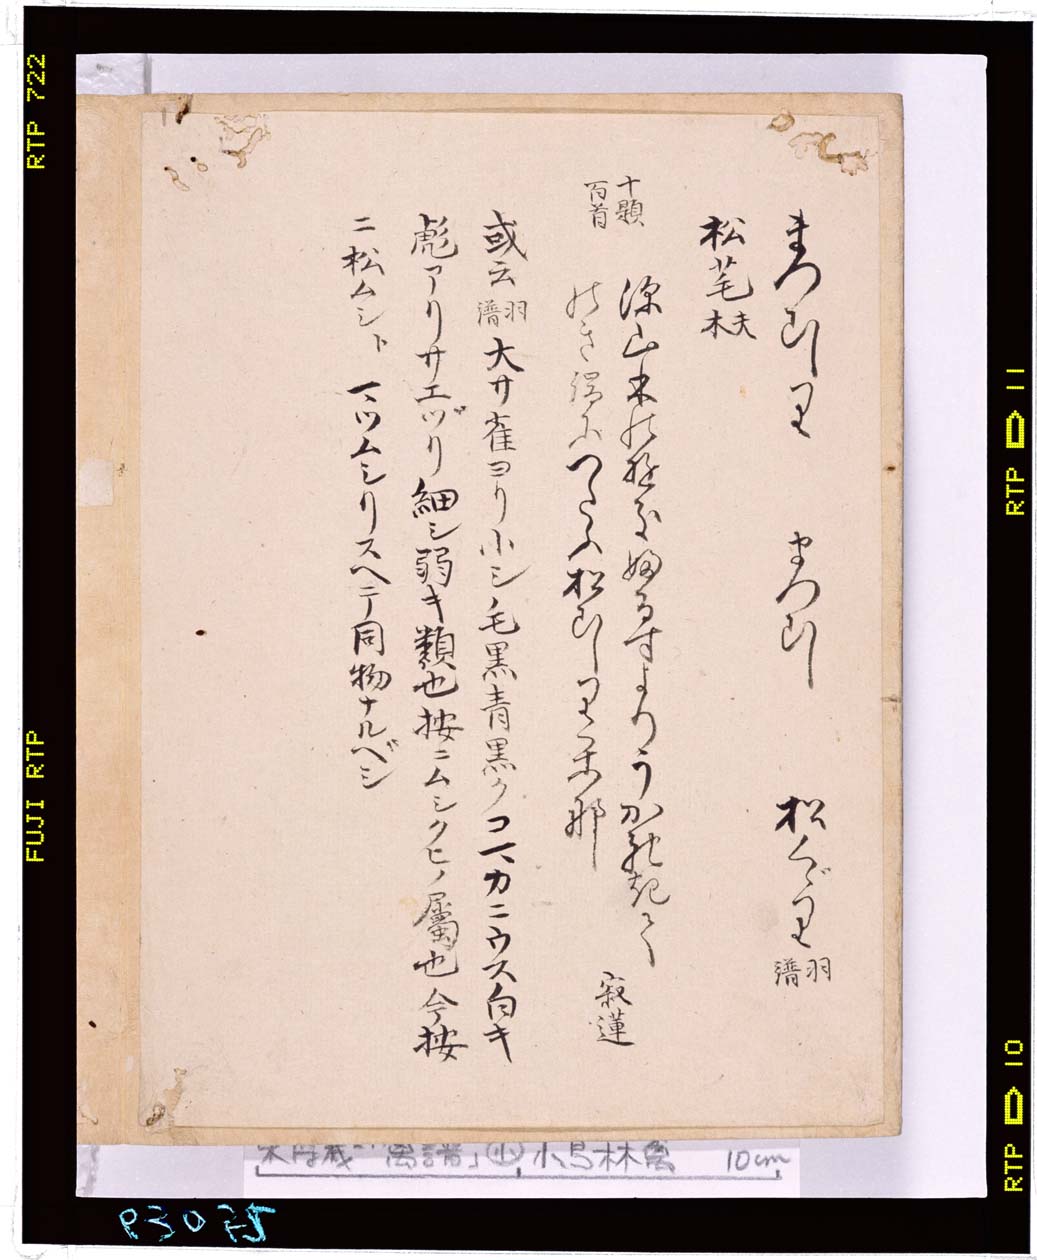 まつむしり まつむし 松くゞり 羽譜
松笔 夫木
十題百首
深山木の雪ふるすよりうかれきて
のき端につたふ松むしり
寂蓮
或云羽譜大サ雀ヨリ小シノ毛黒青黒ク コマカニウス白キ
彪アリサエヅリ細シ弱キ類也按ニムシクヒノ屬也今按
ニ松ムシト マツムシリスヘテ同物ナルベシ
小鳥林禽 10cm
P3075
RTP 722
FUJI RTP
RTP 11
RTP 10